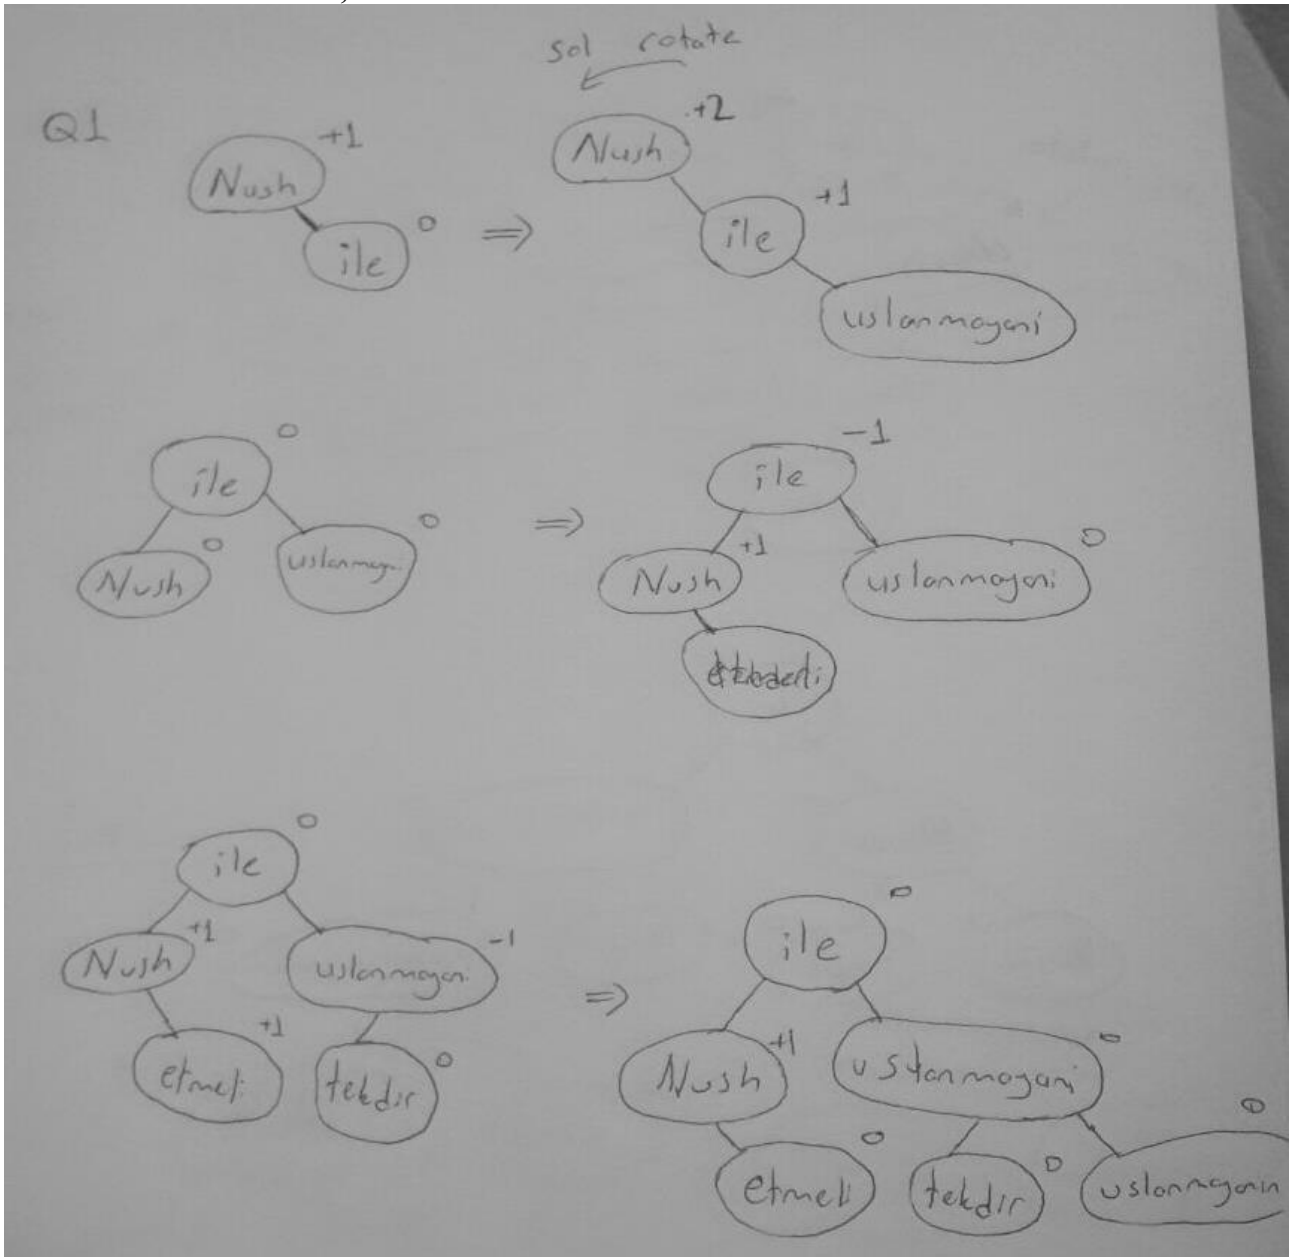 sol rotate
Q1
Nush +1
ile 0
⇒
Nush +2
ile +1
uslanmayani
ile 0
Nush 0
uslanmayani 0
⇒
ile -1
Nush +1
uslanmayani 0
ile 0
Nush +1
uslanmayani -1
etmeli +1
tekdir 0
⇒
ile 0
Nush +1
uslanmayani 0
etmeli 0
tekdir 0
uslanmayanin 0